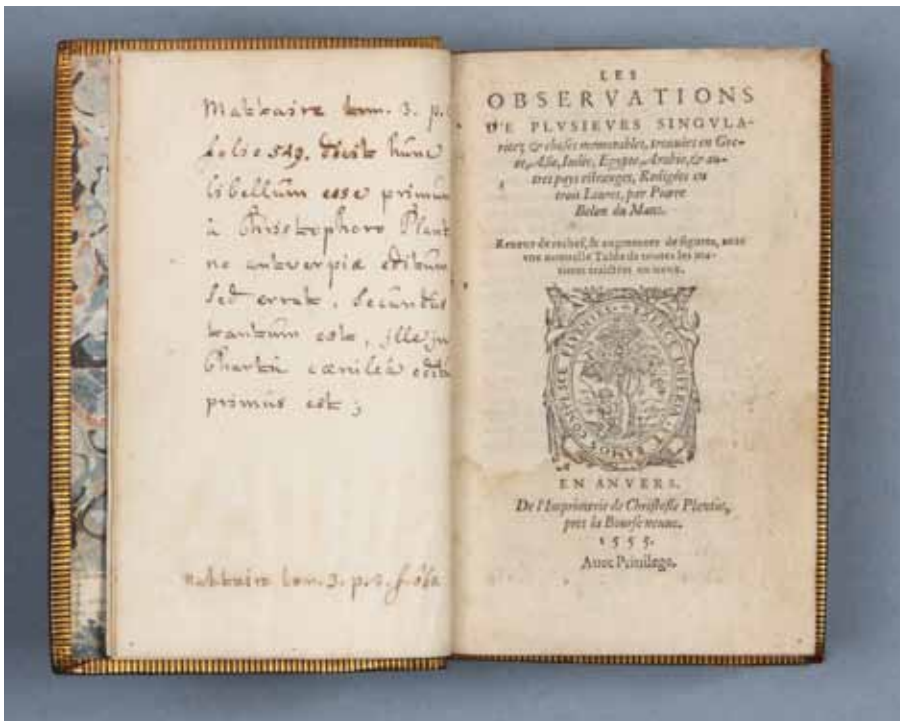 Mattaire tom. 3. p.
folio 549. dicit hunc
libellum esse primum
à Christophoro Plant
no antverpiæ editum
sed errat, secundus
tantum est, ille in
Charta cærulea edit
primus est;
Mattaire tom. 3. p. 2. f.
LES
OBSERVATIONS
DE PLVSIEVRS SINGVLA-
ritez & choses memorables, trouuées en Gre-
ce, Asie, Iudée, Egypte, Arabie, & au-
tres pays estranges, Redigées en
trois Liures, par Pierre
Belon du Mans.
Reueuz de rechef, & augmentez de figures, auec
vne nouuelle Table de toutes les ma-
tieres traictées en iceux.
EXERCE IMPERIA ET RAMOS COMPESCE FLVENTES
EN ANVERS.
De l'Imprimerie de Christofle Plantin,
pres la Bourse neuue.
1555.
Auec Priuilege.